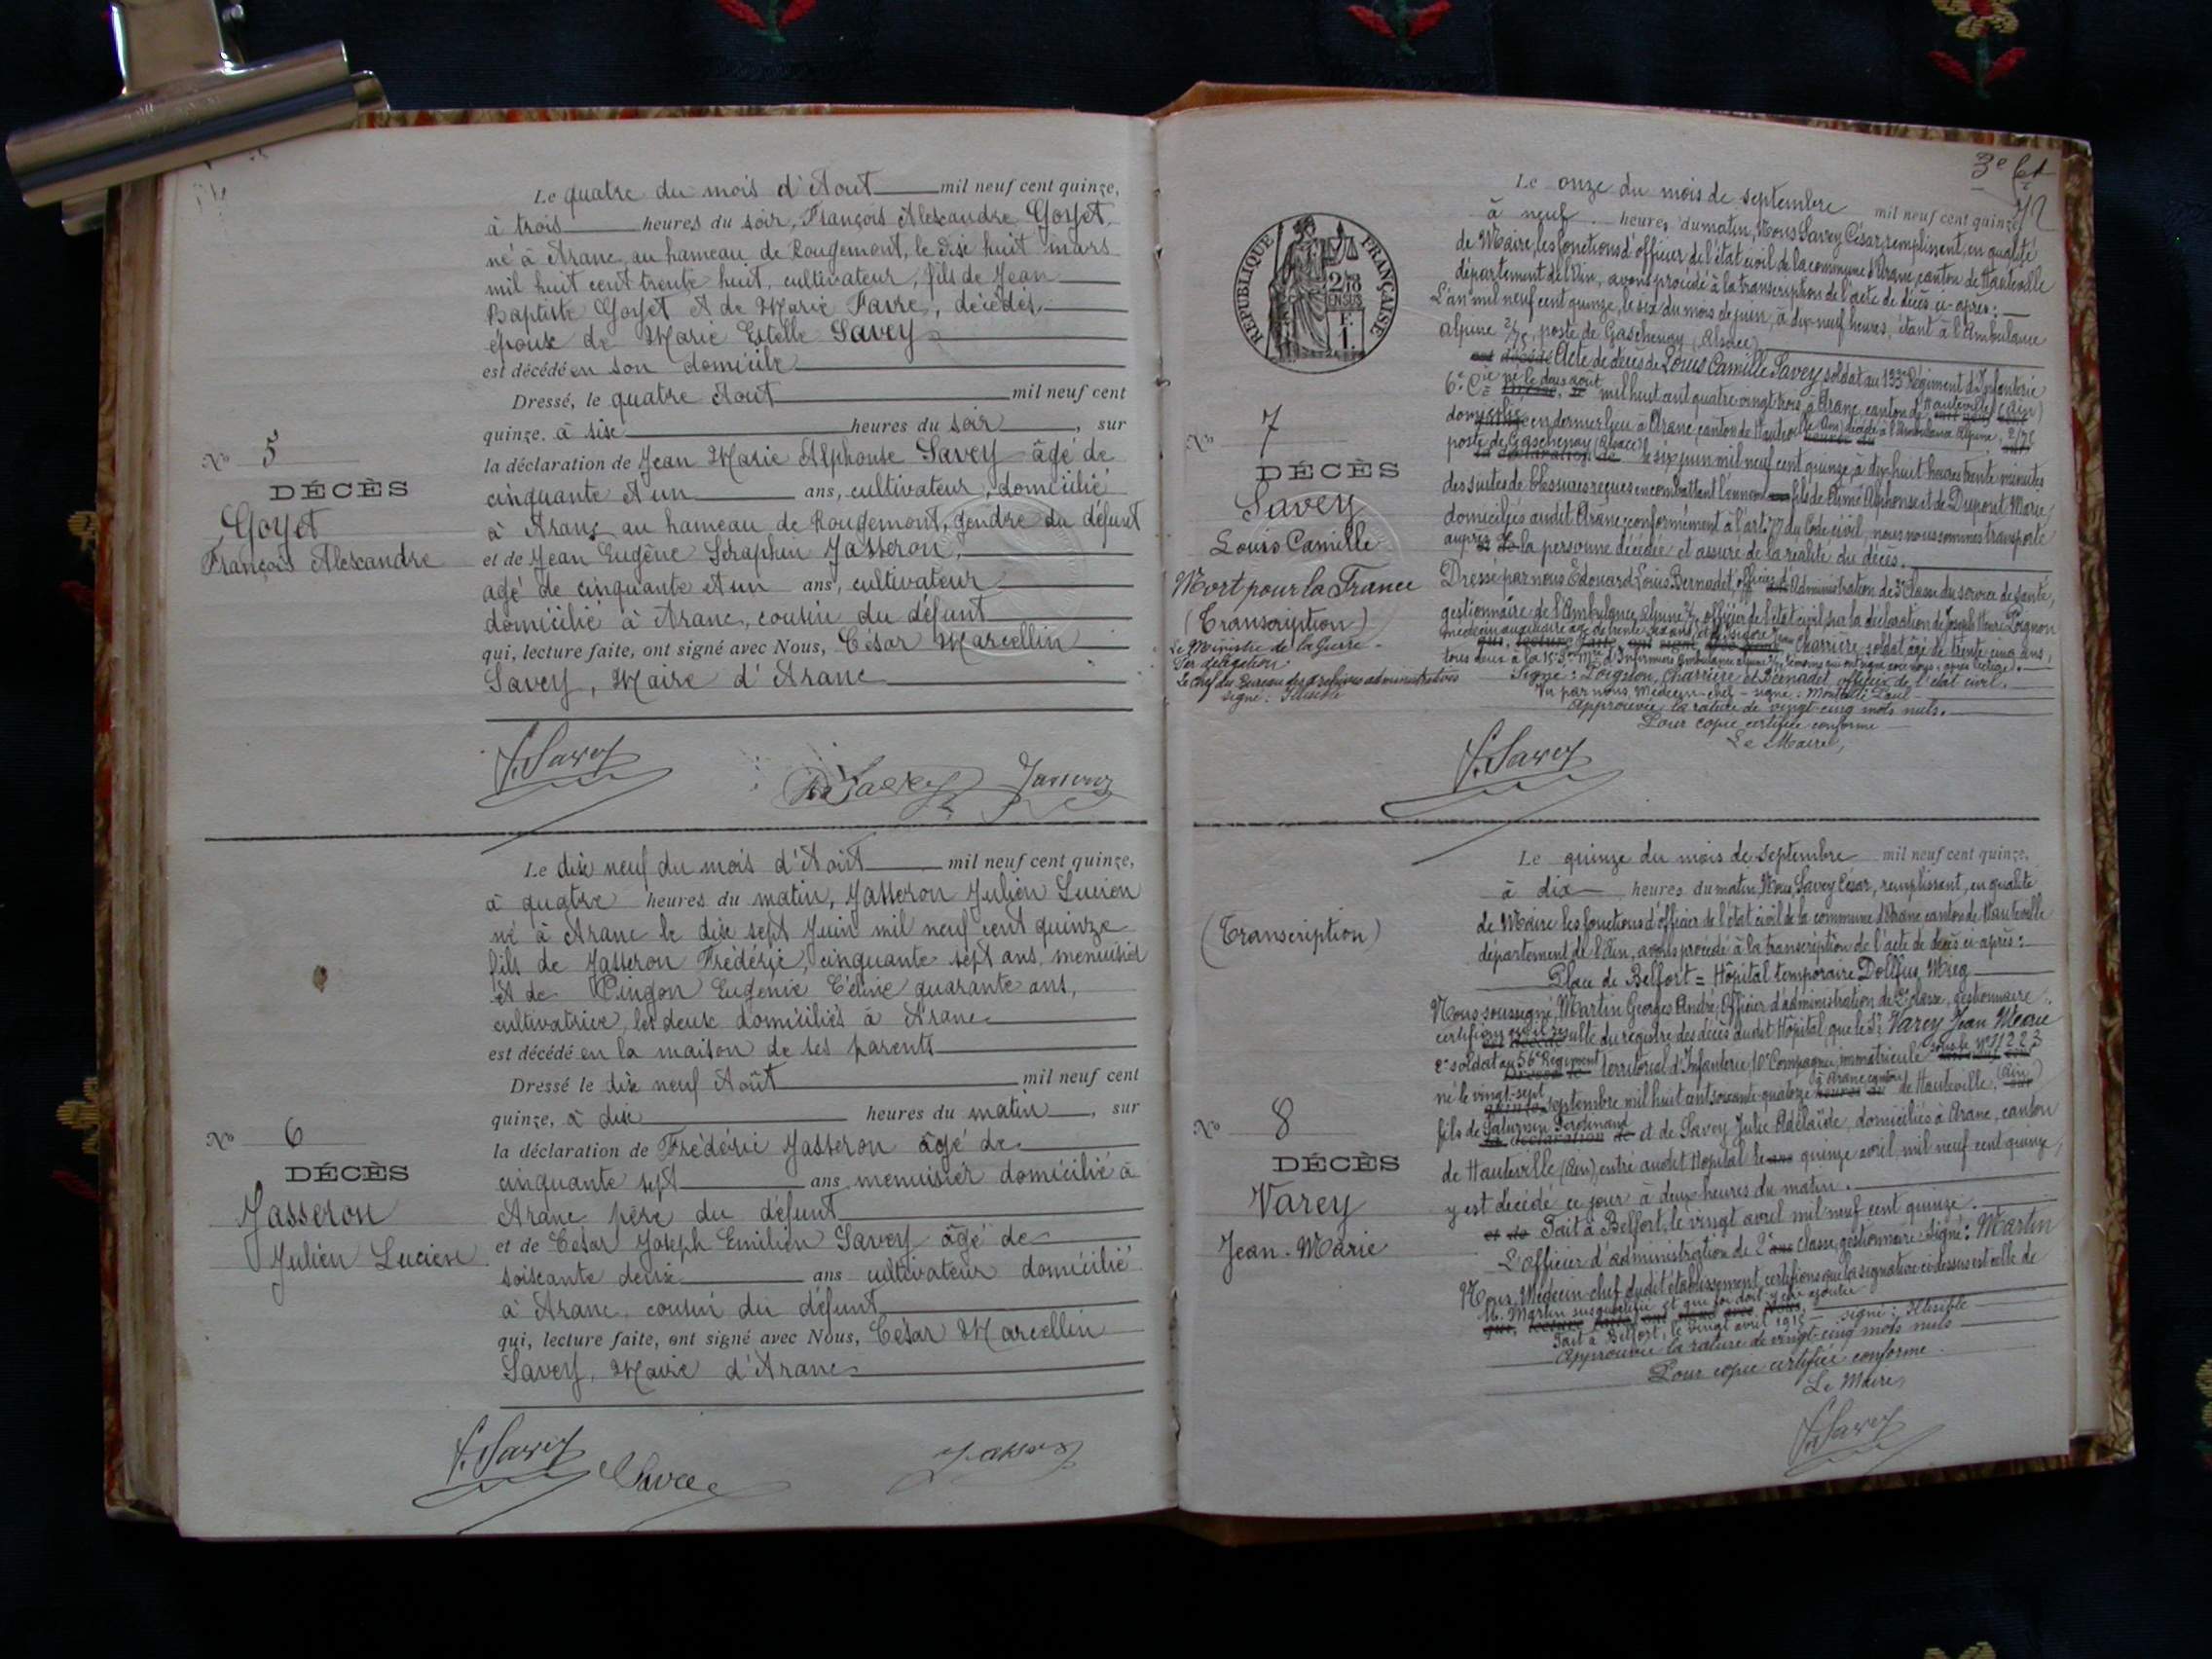 Le quatre du mois d'Aout mil neuf cent quinze,
à trois heures du soir, François Alexandre Goyet,
né à Aranc, au hameau de Rougemont, le dix huit mars
mil huit cent trente huit, cultivateur, fils de Jean
Baptiste Goyet et de Marie Favre, décédés,
époux de Marie Estelle Savey
est décédé en son domicile
Dressé, le quatre Aout mil neuf cent
quinze, à six heures du soir, sur
la déclaration de Jean Marie Alphonse Savey âgé de
cinquante et un ans, cultivateur, domicilié
à Aranc au hameau de Rougemont, gendre du défunt
et de Jean Eugène Séraphin Jasseron,
agé de cinquante et un ans, cultivateur
domicilié à Aranc, cousin du défunt
qui, lecture faite, ont signé avec Nous, César Marcellin
Savey, Maire d'Aranc
No 5
DÉCÈS
Goyet
François Alexandre
C. Savey
Savey
Jasseron
Le dix neuf du mois d'Août mil neuf cent quinze,
à quatre heures du matin, Jasseron Julien Lucien
né à Aranc le dix sept Juin mil neuf cent quinze
fils de Jasseron Frédéric, cinquante sept ans, menuisier
et de Pingon Eugénie Céline quarante ans,
cultivatrice, les deux domiciliés à Aranc
est décédé en la maison de ses parents
Dressé le dix neuf Août mil neuf cent
quinze, à dix heures du matin, sur
la déclaration de Frédéric Jasseron âgé de
cinquante sept ans menuisier domicilié à
Aranc père du défunt
et de César Joseph Emilien Savey âgé de
soixante deux ans cultivateur domicilié
à Aranc, cousin du défunt
qui, lecture faite, ont signé avec Nous, César Marcellin
Savey, Maire d'Aranc
No 6
DÉCÈS
Jasseron
Julien Lucien
C. Savey
3e
RÉPUBLIQUE FRANÇAISE
2/10
EN SUS
F.
1.
Le onze du mois de septembre mil neuf cent quinze
à neuf heures du matin, Nous Savey César, remplissant, en qualité
de Maire, les fonctions d'officier de l'état civil de la commune d'Aranc, canton de Hauteville
département de l'Ain, avons procédé à la transcription de l'acte de décès ci-après :
L'an mil neuf cent quinze, le six du mois de juin, à dix-neuf heures, étant à l'Ambulance
alpine 2/75, poste de Gaschenay (Alsace)
est décédé Acte de décès de Louis Camille Savey soldat au 133e Régiment d'Infanterie
6e Cie né le deux aout mil huit cent quatre vingt trois à Aranc, canton de Hauteville (Ain)
domicilié en dernier lieu à Aranc, canton de Hauteville (Ain) décédé à l'Ambulance Alpine 2/75
poste de Gaschenay (Alsace) le six juin mil neuf cent quinze, à dix huit heures trente minutes
des suites de blessures reçues en combattant l'ennemi fils de Aimé Alphonse et de Dupont Marie
domiciliés audit Aranc, conformément à l'art. 77 du Code civil, nous nous sommes transporté
auprès de la personne décédée et assuré de la réalité du décès.
Dressé par nous Edouard Louis Bernadet, officier d'Administration de 3e Classe du service de santé,
gestionnaire de l'Ambulance alpine 2/75, officier de l'état civil, sur la déclaration de Joseph Henri Loignon
médecin auxiliaire âgé de trente Charrière, soldat âgé de trente cinq ans,
Signé : Loignon, Charrière et Bernadet, officier de l'état civil.
Vu par nous, Médecin-chef - signé :
Approuvée la rature de vingt-cinq mots nuls.
Pour copie certifiée conforme
Le Maire,
C. Savey
No 7
DÉCÈS
Savey
Louis Camille
Mort pour la France
(Transcription)
Le Ministre de la Guerre
Par délégation
Le chef du Bureau des Archives administratives
signé : Illisible
Le quinze du mois de septembre mil neuf cent quinze,
à dix heures du matin, Nous Savey César, remplissant, en qualité
de Maire les fonctions d'officier de l'état civil de la commune d'Aranc canton de Hauteville
département de l'Ain, avons procédé à la transcription de l'acte de décès ci-après :
Place de Belfort = Hôpital temporaire Dollfus Mieg
Nous soussigné, Martin Georges André, Officier d'administration de 2e classe, gestionnaire
certifions qu'il résulte du registre des décès dudit Hôpital que le Sr Varey Jean Marie
2e soldat au 56e Régiment territorial d'Infanterie 10e Compagnie immatriculé sous le No 11223
né le vingt-sept septembre mil huit cent soixante-quatorze à Aranc canton de Hauteville, (Ain)
fils de Saturnin Ferdinand et de Savey Julie Adélaïde, domiciliés à Aranc, canton
de Hauteville (Ain), entré audit Hôpital le quinze avril mil neuf cent quinze,
y est décédé ce jour à deux heures du matin.
et de Fait à Belfort, le vingt avril mil neuf cent quinze.
L'officier d'administration de 2e classe, gestionnaire : Signé : Martin
Nous, Médecin-chef dudit établissement, certifions que la signature ci-dessus est celle de
M. Martin susqualifié et que foi doit y être ajoutée
Fait à Belfort, le vingt avril 1915 signé : Illisible
Approuvée la rature de vingt-cinq mots nuls
Pour copie certifiée conforme
Le Maire,
C. Savey
(Transcription)
No 8
DÉCÈS
Varey
Jean-Marie